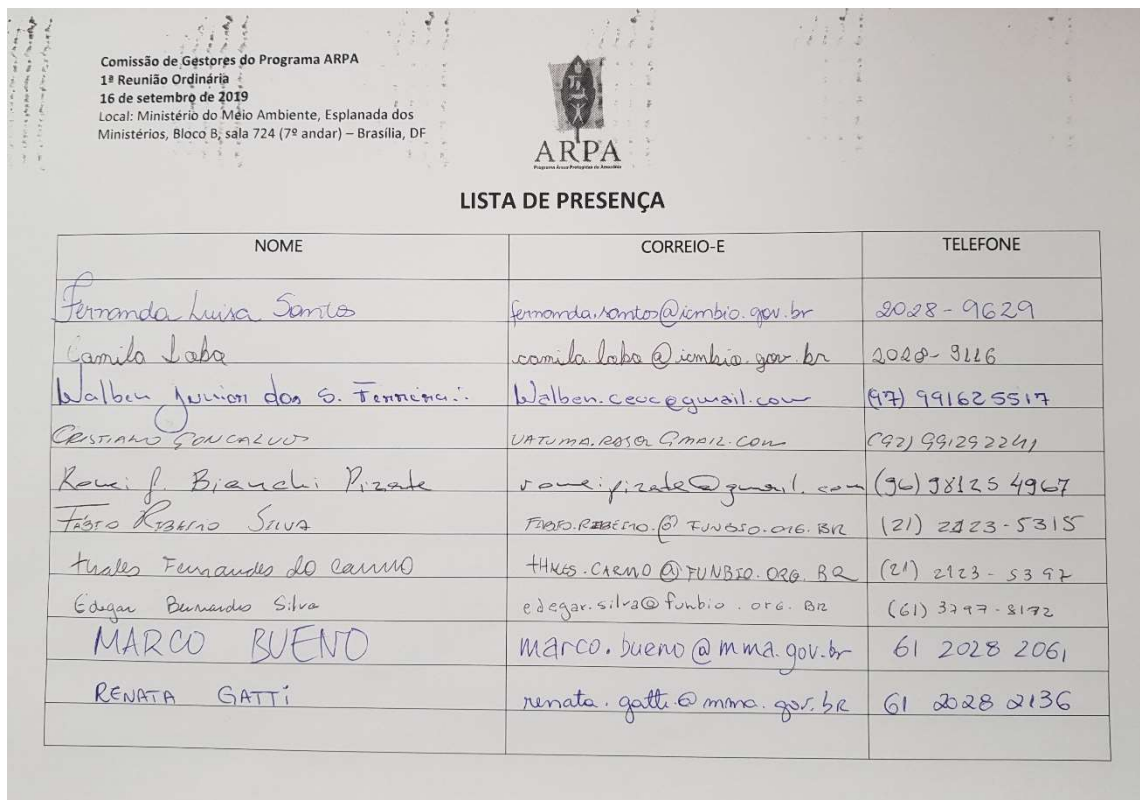 Comissão de Gestores do Programa ARPA
1ª Reunião Ordinária
16 de setembro de 2019
Local: Ministério do Meio Ambiente, Esplanada dos
Ministérios, Bloco B, sala 724 (7º andar) – Brasília, DF
ARPA
Programa Áreas Protegidas da Amazônia
LISTA DE PRESENÇA
NOME CORREIO-E TELEFONE
Fernanda Luisa Santos fernanda.santos@icmbio.gov.br 2028-9629
Camila Loba camila.loba@icmbio.gov.br 2028-9116
Walben Junior dos S. Walben.ceuc@gmail.com (97) 991625517
CRISTIANO GONCALVES (92) 991292241
Bianchi Pizate romeipizate@gmail.com (96) 98125 4967
FÁBIO RIBEIRO SILVA FABIO.RIBEIRO.@FUNBIO.ORG.BR (21) 2123-5315
thales Fernandes do carmo tHALES.CARMO@FUNBIO.ORG.BR (21) 2123-5397
Edegar Bernardes Silva edegar.silva@funbio.org.BR (61) 3797-8172
MARCO BUENO marco.bueno@mma.gov.br 61 2028 2061
RENATA GATTi renata.gatti@mma.gov.bR 61 2028 2136